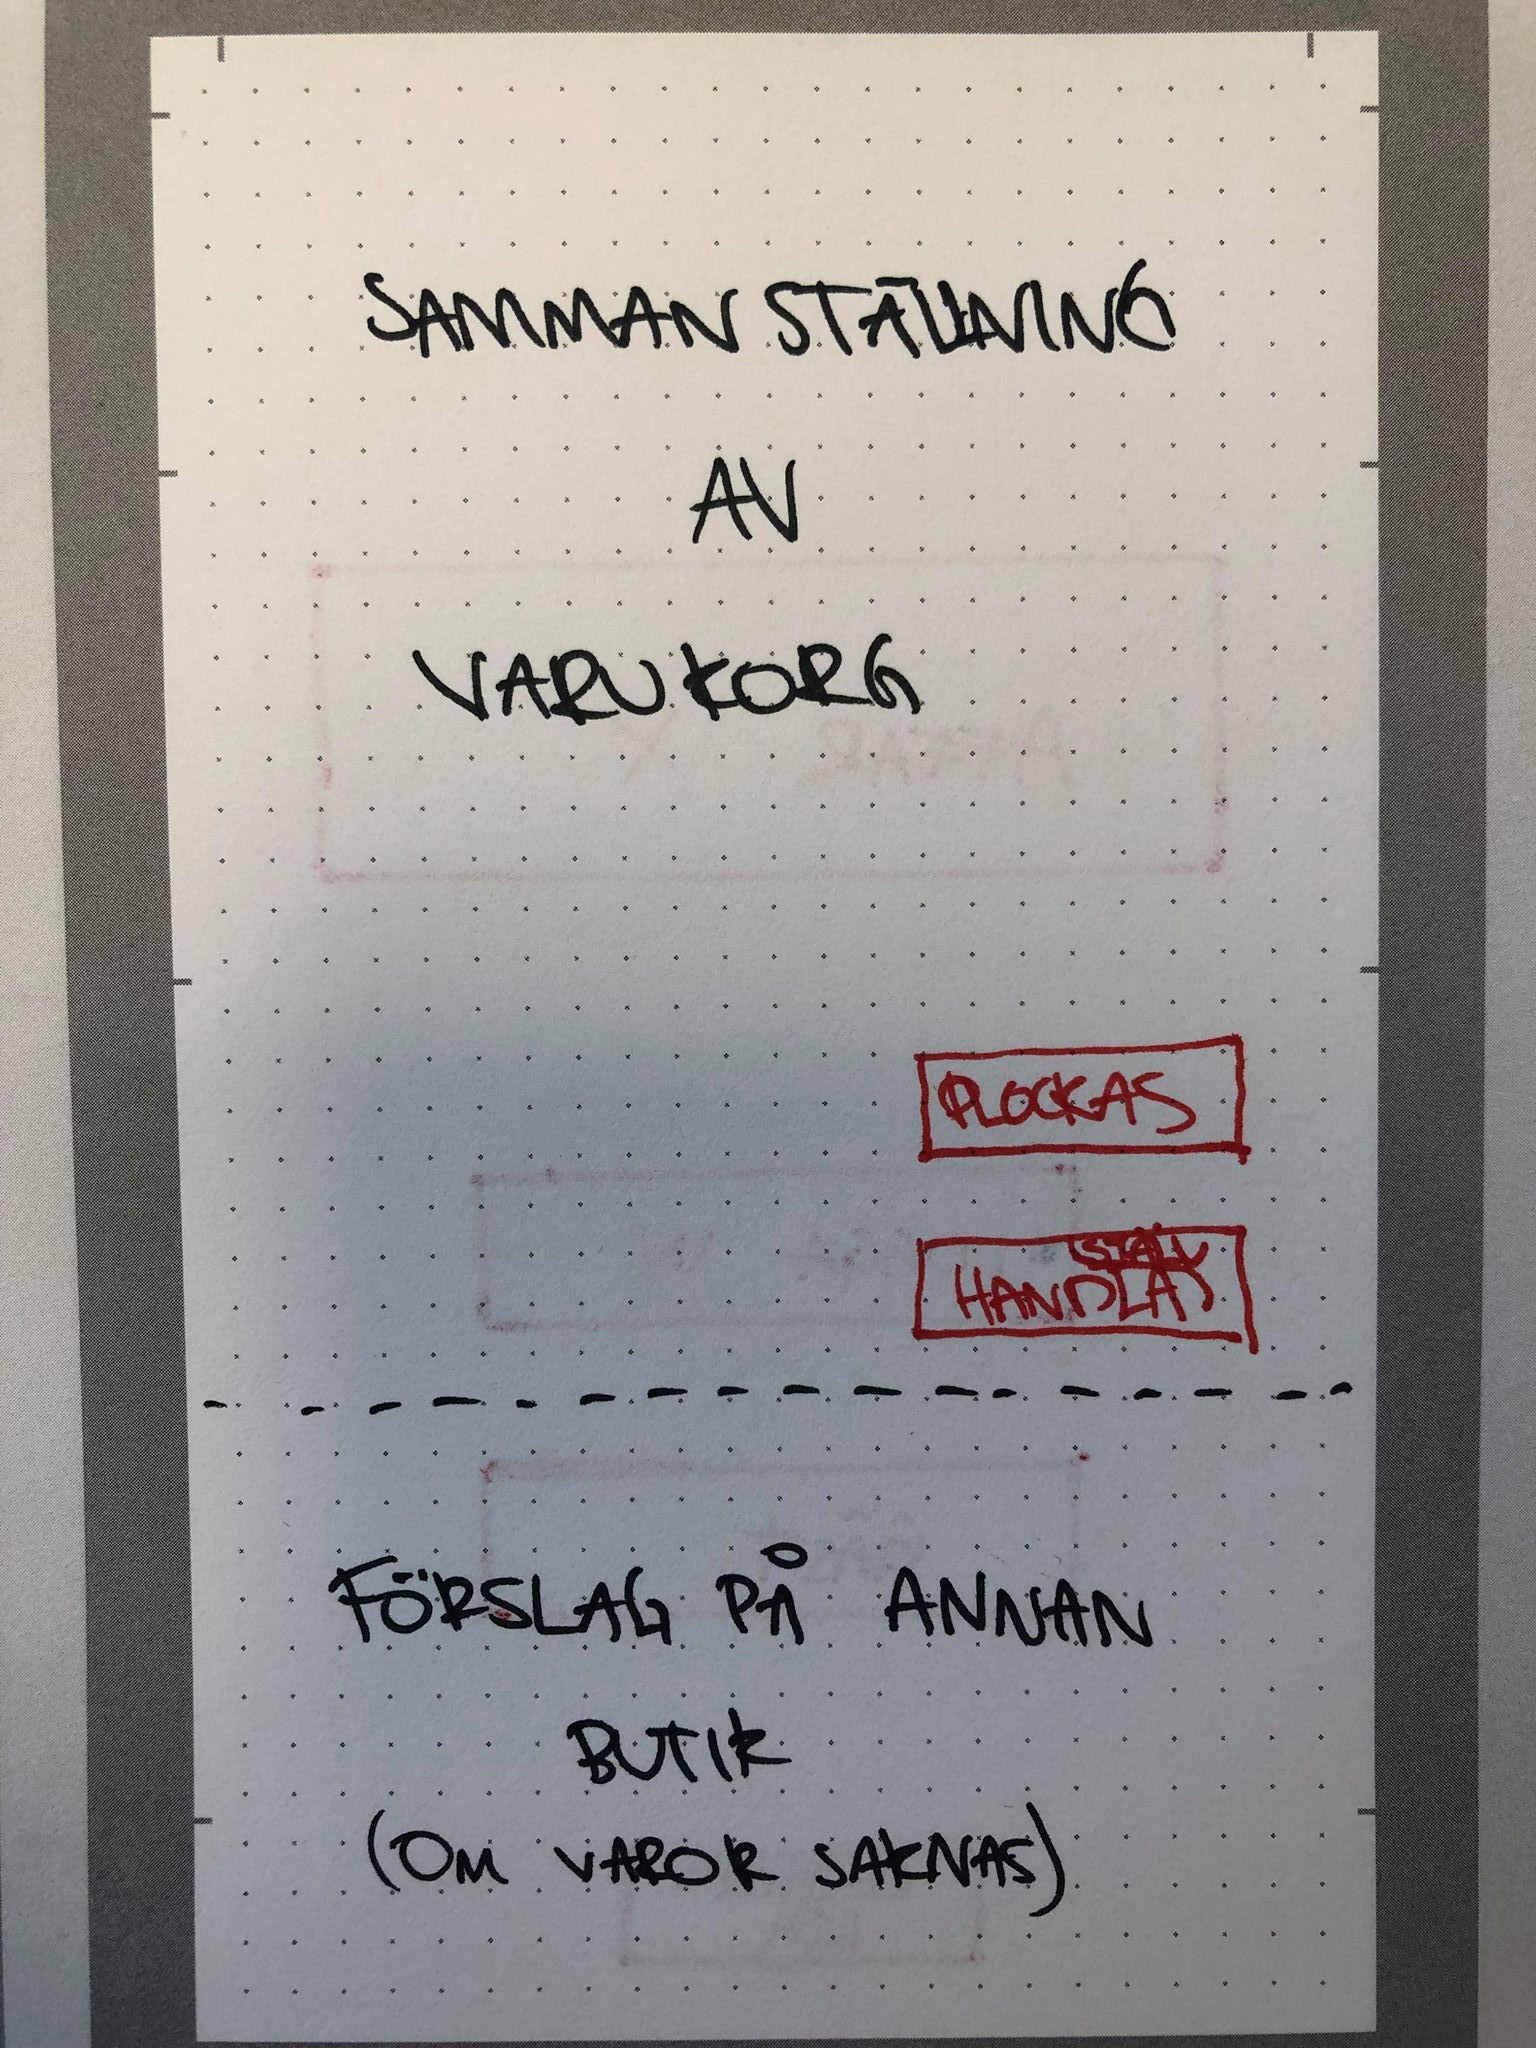 SAMMANSTÄLLNING
AV
VARUKORG
PLOCKAS
HANDLA
SJÄLV
FÖRSLAG PÅ ANNAN
BUTIK
(OM VAROR SAKNAS)